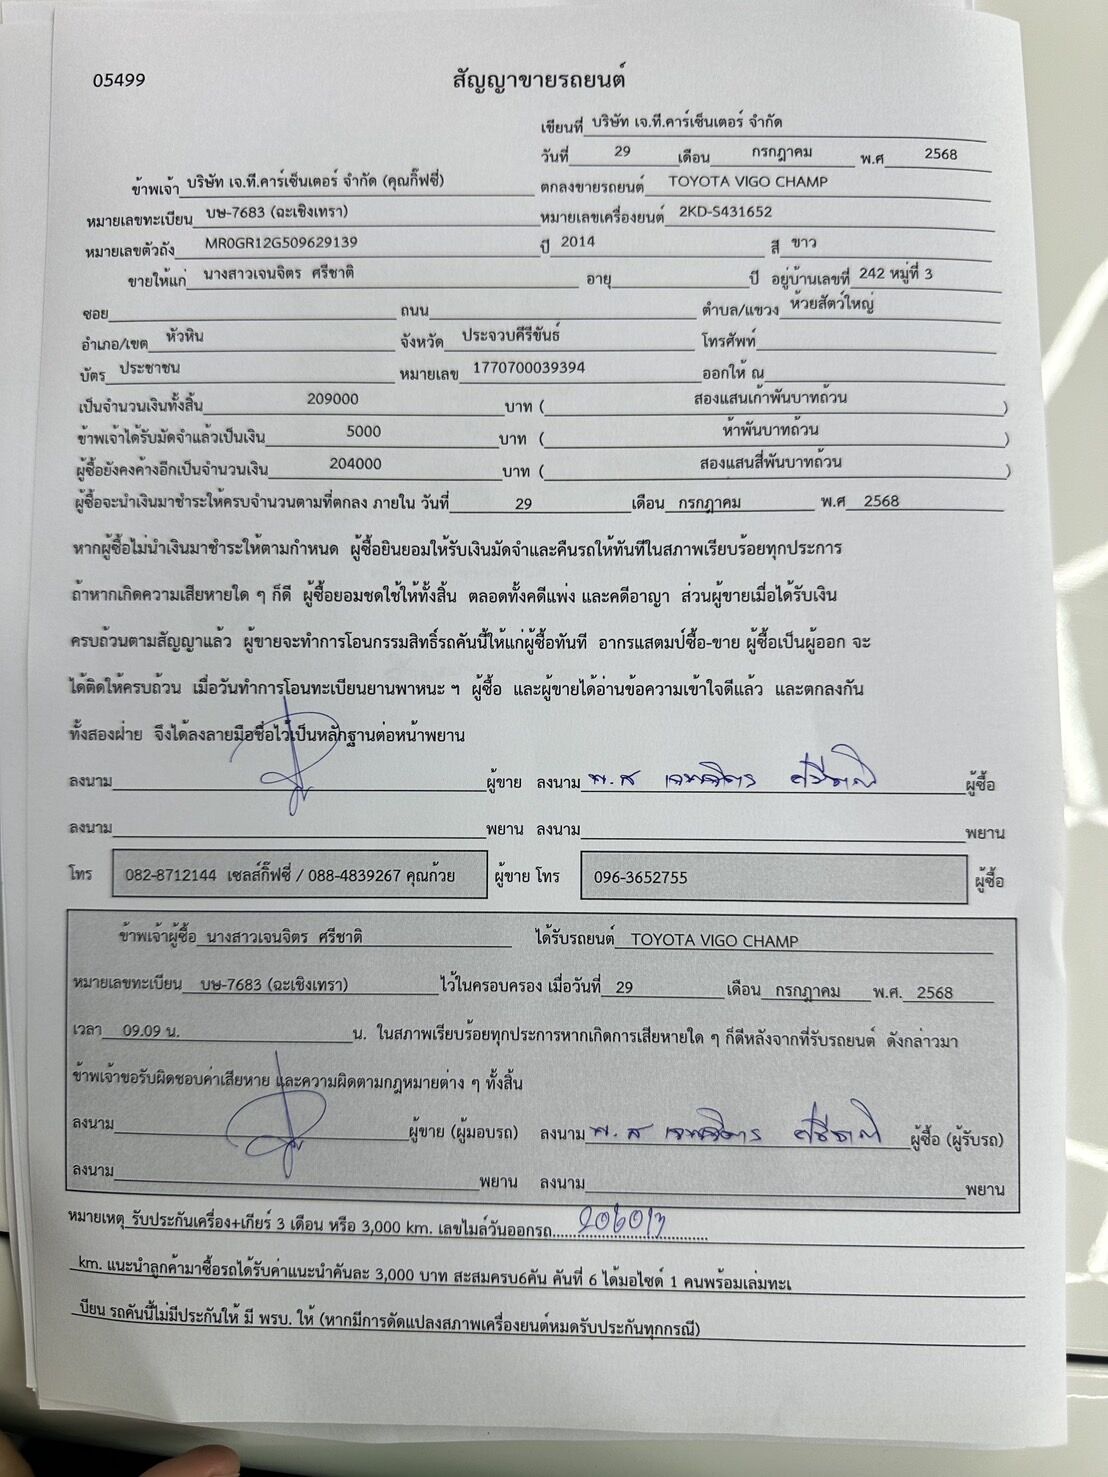 05499
สัญญาขายรถยนต์
เขียนที่ บริษัท เจ.ที.คาร์เซ็นเตอร์ จำกัด
วันที่ 29 เดือน กรกฎาคม พ.ศ 2568
ข้าพเจ้า บริษัท เจ.ที.คาร์เซ็นเตอร์ จำกัด (คุณกิ๊ฟซี่) ตกลงขายรถยนต์ TOYOTA VIGO CHAMP
หมายเลขทะเบียน บษ-7683 (ฉะเชิงเทรา) หมายเลขเครื่องยนต์ 2KD-S431652
หมายเลขตัวถัง MR0GR12G509629139 ปี 2014 สี ขาว
ขายให้แก่ นางสาวเจนจิตร ศรีชาติ อายุ ปี อยู่บ้านเลขที่ 242 หมู่ที่ 3
ซอย ถนน ตำบล/แขวง ห้วยสัตว์ใหญ่
อำเภอ/เขต หัวหิน จังหวัด ประจวบคีรีขันธ์ โทรศัพท์
บัตร ประชาชน หมายเลข 1770700039394 ออกให้ ณ
เป็นจำนวนเงินทั้งสิ้น 209000 บาท ( สองแสนเก้าพันบาทถ้วน )
ข้าพเจ้าได้รับมัดจำแล้วเป็นเงิน 5000 บาท ( ห้าพันบาทถ้วน )
ผู้ซื้อยังคงค้างอีกเป็นจำนวนเงิน 204000 บาท ( สองแสนสี่พันบาทถ้วน )
ผู้ซื้อจะนำเงินมาชำระให้ครบจำนวนตามที่ตกลง ภายใน วันที่ 29 เดือน กรกฎาคม พ.ศ 2568
หากผู้ซื้อไม่นำเงินมาชำระให้ตามกำหนด ผู้ซื้อยินยอมให้รับเงินมัดจำและคืนรถให้ทันทีในสภาพเรียบร้อยทุกประการ
ถ้าหากเกิดความเสียหายใด ๆ ก็ดี ผู้ซื้อยอมชดใช้ให้ทั้งสิ้น ตลอดทั้งคดีแพ่ง และคดีอาญา ส่วนผู้ขายเมื่อได้รับเงิน
ครบถ้วนตามสัญญาแล้ว ผู้ขายจะทำการโอนกรรมสิทธิ์รถคันนี้ให้แก่ผู้ซื้อทันที อากรแสตมป์ซื้อ-ขาย ผู้ซื้อเป็นผู้ออก จะ
ได้ติดให้ครบถ้วน เมื่อวันทำการโอนทะเบียนยานพาหนะ ฯ ผู้ซื้อ และผู้ขายได้อ่านข้อความเข้าใจดีแล้ว และตกลงกัน
ทั้งสองฝ่าย จึงได้ลงลายมือชื่อไว้เป็นหลักฐานต่อหน้าพยาน
ลงนาม ผู้ขาย ลงนาม น.ส เจนจิตร ศรีชาติ ผู้ซื้อ
ลงนาม พยาน ลงนาม พยาน
โทร 082-8712144 เซลส์กิ๊ฟซี่ / 088-4839267 คุณก้วย ผู้ขาย โทร 096-3652755 ผู้ซื้อ
ข้าพเจ้าผู้ซื้อ นางสาวเจนจิตร ศรีชาติ ได้รับรถยนต์ TOYOTA VIGO CHAMP
หมายเลขทะเบียน บษ-7683 (ฉะเชิงเทรา) ไว้ในครอบครอง เมื่อวันที่ 29 เดือน กรกฎาคม พ.ศ. 2568
เวลา 09.09 น. น. ในสภาพเรียบร้อยทุกประการหากเกิดการเสียหายใด ๆ ก็ดีหลังจากที่รับรถยนต์ ดังกล่าวมา
ข้าพเจ้าขอรับผิดชอบค่าเสียหาย และความผิดตามกฎหมายต่าง ๆ ทั้งสิ้น
ลงนาม ผู้ขาย (ผู้มอบรถ) ลงนาม น.ส เจนจิตร ศรีชาติ ผู้ซื้อ (ผู้รับรถ)
ลงนาม พยาน ลงนาม พยาน
หมายเหตุ รับประกันเครื่อง+เกียร์ 3 เดือน หรือ 3,000 km. เลขไมล์วันออกรถ
km. แนะนำลูกค้ามาซื้อรถได้รับค่าแนะนำคันละ 3,000 บาท สะสมครบ6คัน คันที่ 6 ได้มอไซด์ 1 คนพร้อมเล่มทะเ
บียน รถคันนี้ไม่มีประกันให้ มี พรบ. ให้ (หากมีการดัดแปลงสภาพเครื่องยนต์หมดรับประกันทุกกรณี)